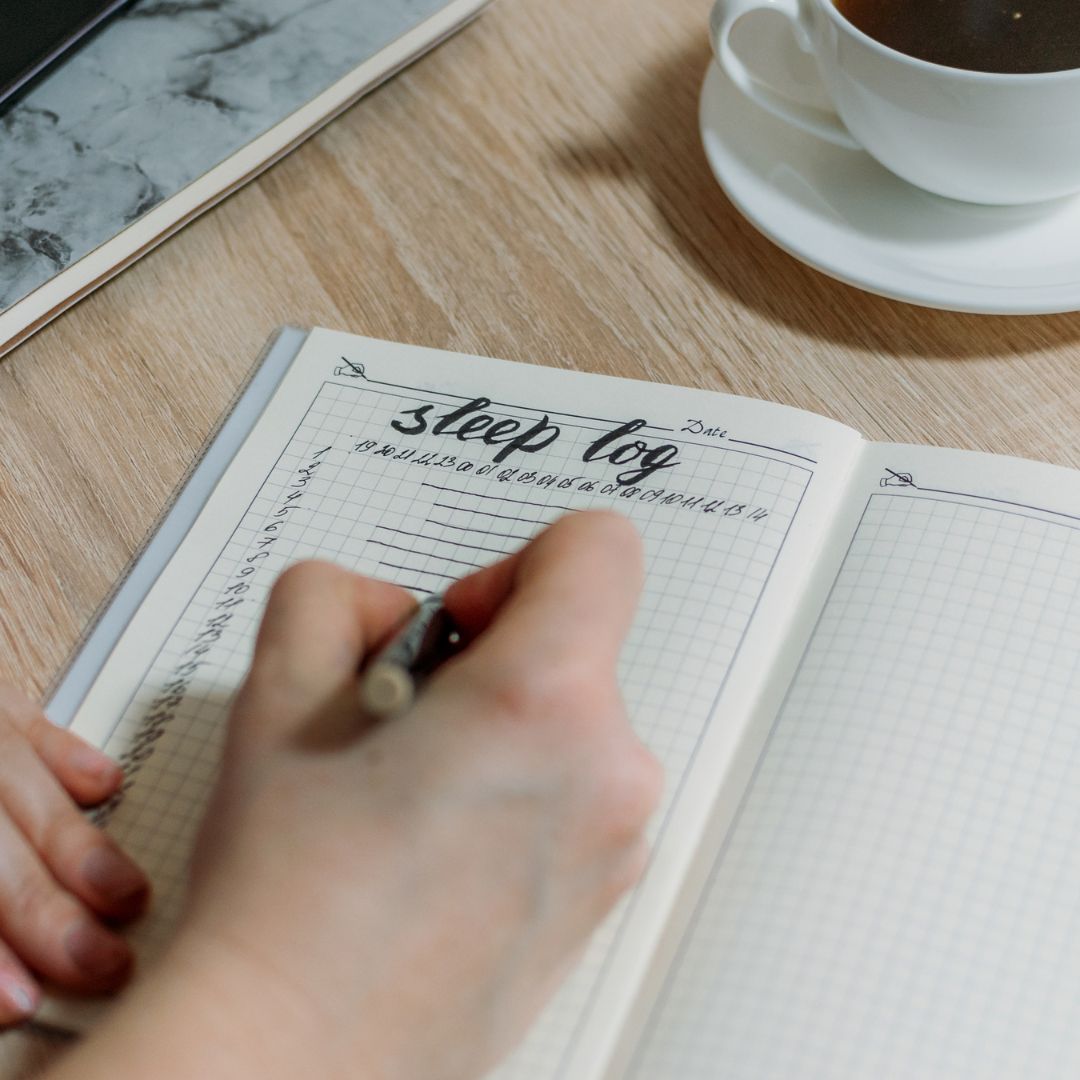 Date
sleep log
19 20 21 22 23 00 01 02 03 04 05 06 07 08 09 10 11 12 13 14
1
2
3
4
5
6
7
8
9
10
11
12
13
14
15